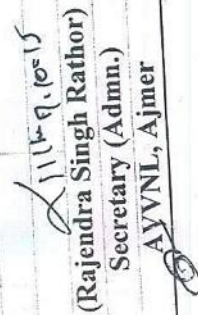 (Rajendra Singh Rathor)
Secretary (Admn.)
AVVNL, Ajmer